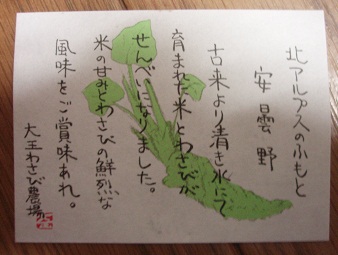 北アルプスのふもと
安曇野
古来より清き水にて
育まれた米とわさびが
せんべいになりました。
米の甘みとわさびの鮮烈な
風味をご賞味あれ。
大王わさび農場